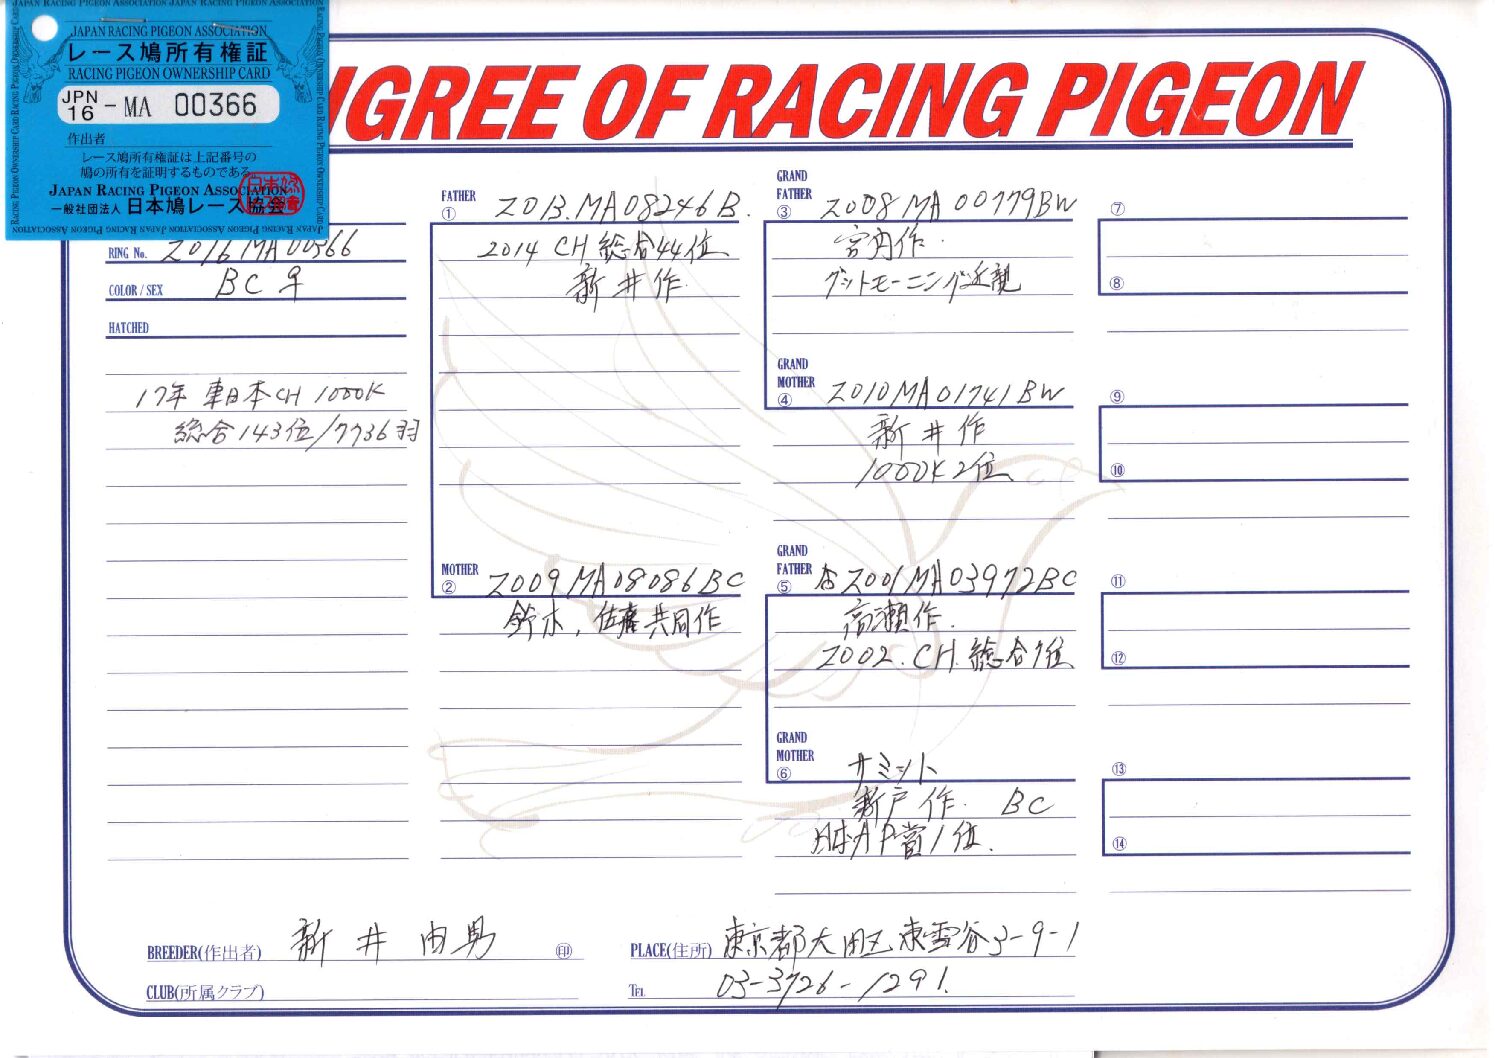 JAPAN RACING PIGEON ASSOCIATION
レース鳩所有権証
RACING PIGEON OWNERSHIP CARD
JPN 16 - MA 00366
作出者
レース鳩所有権証は上記番号の
鳩の所有を証明するものである。
JAPAN RACING PIGEON ASSOCIATION
一般社団法人 日本鳩レース協会
IGREE OF RACING PIGEON
RING No. 2016 MA 00366
COLOR / SEX BC ♀
HATCHED
17年 東日本CH 1000K
総合143位/7736羽
FATHER ① 2013.MA08246B.
2014 CH 総合44位
新井作
MOTHER ② 2009MA08086BC
鈴木,佐藤共同作
GRAND FATHER ③ 2008MA00779BW
宮内作
グットモーニング近親
GRAND MOTHER ④ 2010MA01741BW
新井作
1000K2位
GRAND FATHER ⑤ 2001MA03972BC
高瀬作.
2002.CH.総合1位
GRAND MOTHER ⑥ サミット
新戸作 BC
日本AP賞1位.
⑦
⑧
⑨
⑩
⑪
⑫
⑬
⑭
BREEDER(作出者) 新井由男 ㊞
CLUB(所属クラブ)
PLACE(住所) 東京都大田区東雪谷3-9-1
TEL 03-3726-1291.